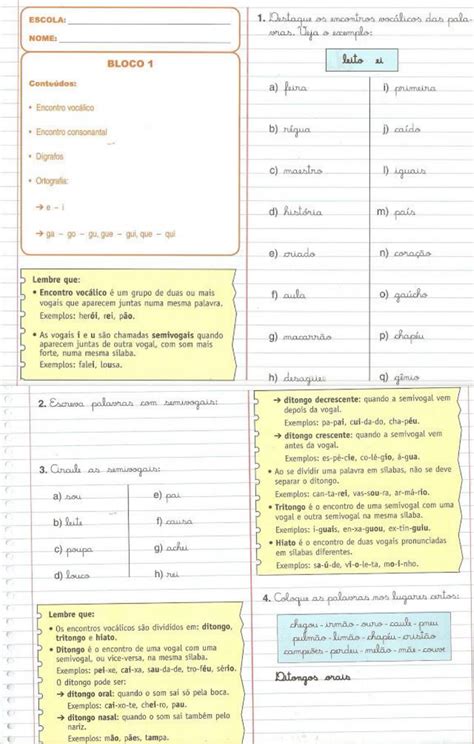 ESCOLA:
NOME:
BLOCO 1
Conteúdos:
• Encontro vocálico
• Encontro consonantal
• Dígrafos
• Ortografia:
→ e – i
→ ga – go – gu, gue – gui, que – qui
Lembre que:
• Encontro vocálico é um grupo de duas ou mais
vogais que aparecem juntas numa mesma palavra.
Exemplos: herói, rei, pão.
• As vogais i e u são chamadas semivogais quando
aparecem juntas de outra vogal, com som mais
forte, numa mesma sílaba.
Exemplos: falei, lousa.
1. Destaque os encontros vocálicos das pala-
vras. Veja o exemplo:
leito ei
a) feira
b) régua
c) maestro
d) história
e) criado
f) aula
g) macarrão
h) desaguei
i) primeira
j) caído
l) iguais
m) país
n) coração
o) gaúcho
p) chapéu
q) gênio
2. Escreva palavras com semivogais:
3. Circule as semivogais:
a) sou
b) leite
c) poupa
d) louco
e) pai
f) causa
g) achei
h) rei
Lembre que:
• Os encontros vocálicos são divididos em: ditongo,
tritongo e hiato.
• Ditongo é o encontro de uma vogal com uma
semivogal, ou vice-versa, na mesma sílaba.
Exemplos: pei-xe, cai-xa, sau-da-de, tro-féu, sério.
O ditongo pode ser:
→ ditongo oral: quando o som sai só pela boca.
Exemplos: cai-xo-te, chei-ro, pau.
→ ditongo nasal: quando o som sai também pelo
nariz.
Exemplos: mão, pães, tampa.
→ ditongo decrescente: quando a semivogal vem
depois da vogal.
Exemplos: pa-pai, cui-da-do, cha-péu.
→ ditongo crescente: quando a semivogal vem
antes da vogal.
Exemplos: es-pé-cie, co-lé-gio, á-gua.
• Ao se dividir uma palavra em sílabas, não se deve
separar o ditongo.
Exemplos: can-ta-rei, vas-sou-ra, ar-má-rio.
• Tritongo é o encontro de uma semivogal com uma
vogal e outra semivogal na mesma sílaba.
Exemplos: i-guais, en-xa-guou, ex-tin-guiu.
• Hiato é o encontro de duas vogais pronunciadas
em sílabas diferentes.
Exemplos: sa-ú-de, vi-o-le-ta, mo-i-nho.
4. Coloque as palavras nos lugares certos:
chegou - irmão - ouro - caule - pneu
pulmão - limão - chapéu - cristão
campeões - perdeu - melão - mãe - couve
Ditongos orais